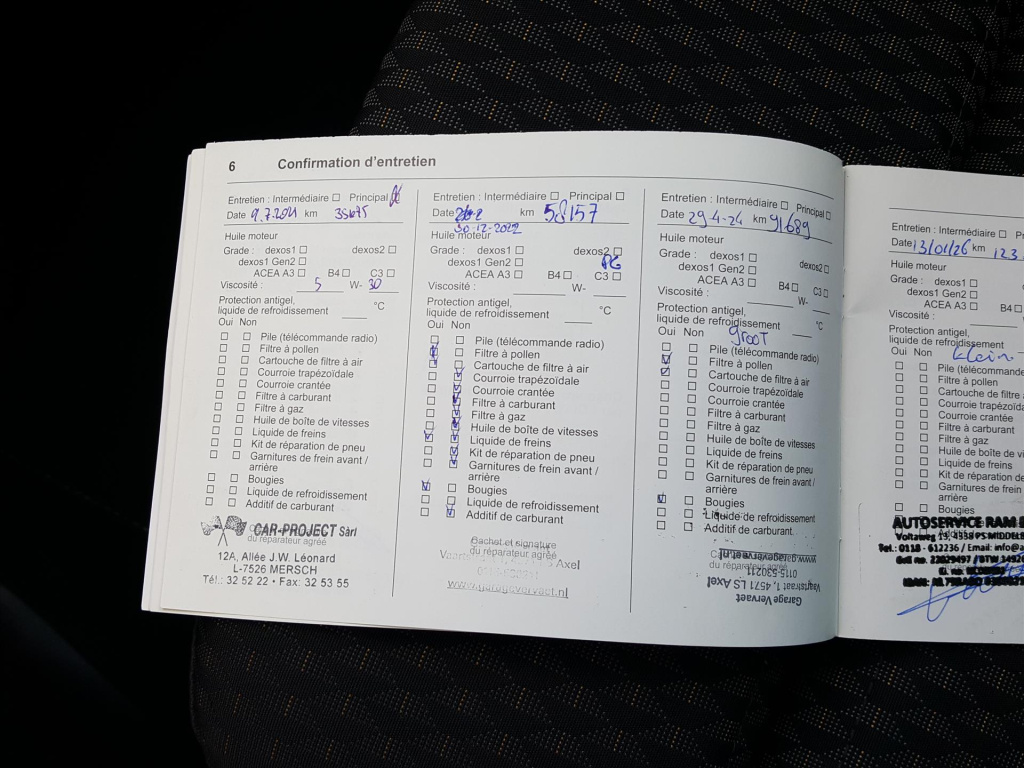 6 Confirmation d'entretien
Entretien : Intermédiaire Principal
Date 9.7.2021 km
Huile moteur
Grade : dexos1 dexos2
dexos1 Gen2
ACEA A3 B4 C3
Viscosité : 5 W- 30
Protection antigel,
liquide de refroidissement °C
Oui Non
Pile (télécommande radio)
Filtre à pollen
Cartouche de filtre à air
Courroie trapézoïdale
Courroie crantée
Filtre à carburant
Filtre à gaz
Huile de boîte de vitesses
Liquide de freins
Kit de réparation de pneu
Garnitures de frein avant /
arrière
Bougies
Liquide de refroidissement
Additif de carburant
CAR-PROJECT Sàrl
du réparateur agréé
12A, Allée J.W. Léonard
L-7526 MERSCH
Tél.: 32 52 22 • Fax: 32 53 55
Entretien : Intermédiaire Principal
Date km 58157
30-12-2022
Huile moteur
Grade : dexos1 dexos2
dexos1 Gen2
ACEA A3 B4 C3
Viscosité : W-
Protection antigel,
liquide de refroidissement °C
Oui Non
Pile (télécommande radio)
Filtre à pollen
Cartouche de filtre à air
Courroie trapézoïdale
Courroie crantée
Filtre à carburant
Filtre à gaz
Huile de boîte de vitesses
Liquide de freins
Kit de réparation de pneu
Garnitures de frein avant /
arrière
Bougies
Liquide de refroidissement
Additif de carburant
Cachet et signature
du réparateur agréé
Axel
www.garagevervaet.nl
Entretien : Intermédiaire Principal
Date 29-4-24 km 91689
Huile moteur
Grade : dexos1 dexos2
dexos1 Gen2
ACEA A3 B4 C3
Viscosité : W-
Protection antigel,
liquide de refroidissement °C
Oui Non groot
Pile (télécommande radio)
Filtre à pollen
Cartouche de filtre à air
Courroie trapézoïdale
Courroie crantée
Filtre à carburant
Filtre à gaz
Huile de boîte de vitesses
Liquide de freins
Kit de réparation de pneu
Garnitures de frein avant /
arrière
Bougies
Liquide de refroidissement
Additif de carburant
www.garagevervaet.nl
du réparateur agréé
0115-530211
Vaartstraat 1, 4571 LS Axel
Garage Vervaet
Entretien : Intermédiaire
Date 13/01/26 km 123
Huile moteur
Grade : dexos1
dexos1 Gen2
ACEA A3 B4
Viscosité :
Protection antigel,
liquide de refroidissement
Oui Non klein
Pile (télécommande
Filtre à pollen
Cartouche de filtre à
Courroie trapézoïd
Courroie crantée
Filtre à carburant
Filtre à gaz
Huile de boîte de vi
Liquide de freins
Kit de réparation de
Garnitures de frein
arrière
Bougies
AUTOSERVICE RAM
Voltaweg 13, 4338 PS MIDDELB
Tel.: 0118 - 612236 / Email: info@a